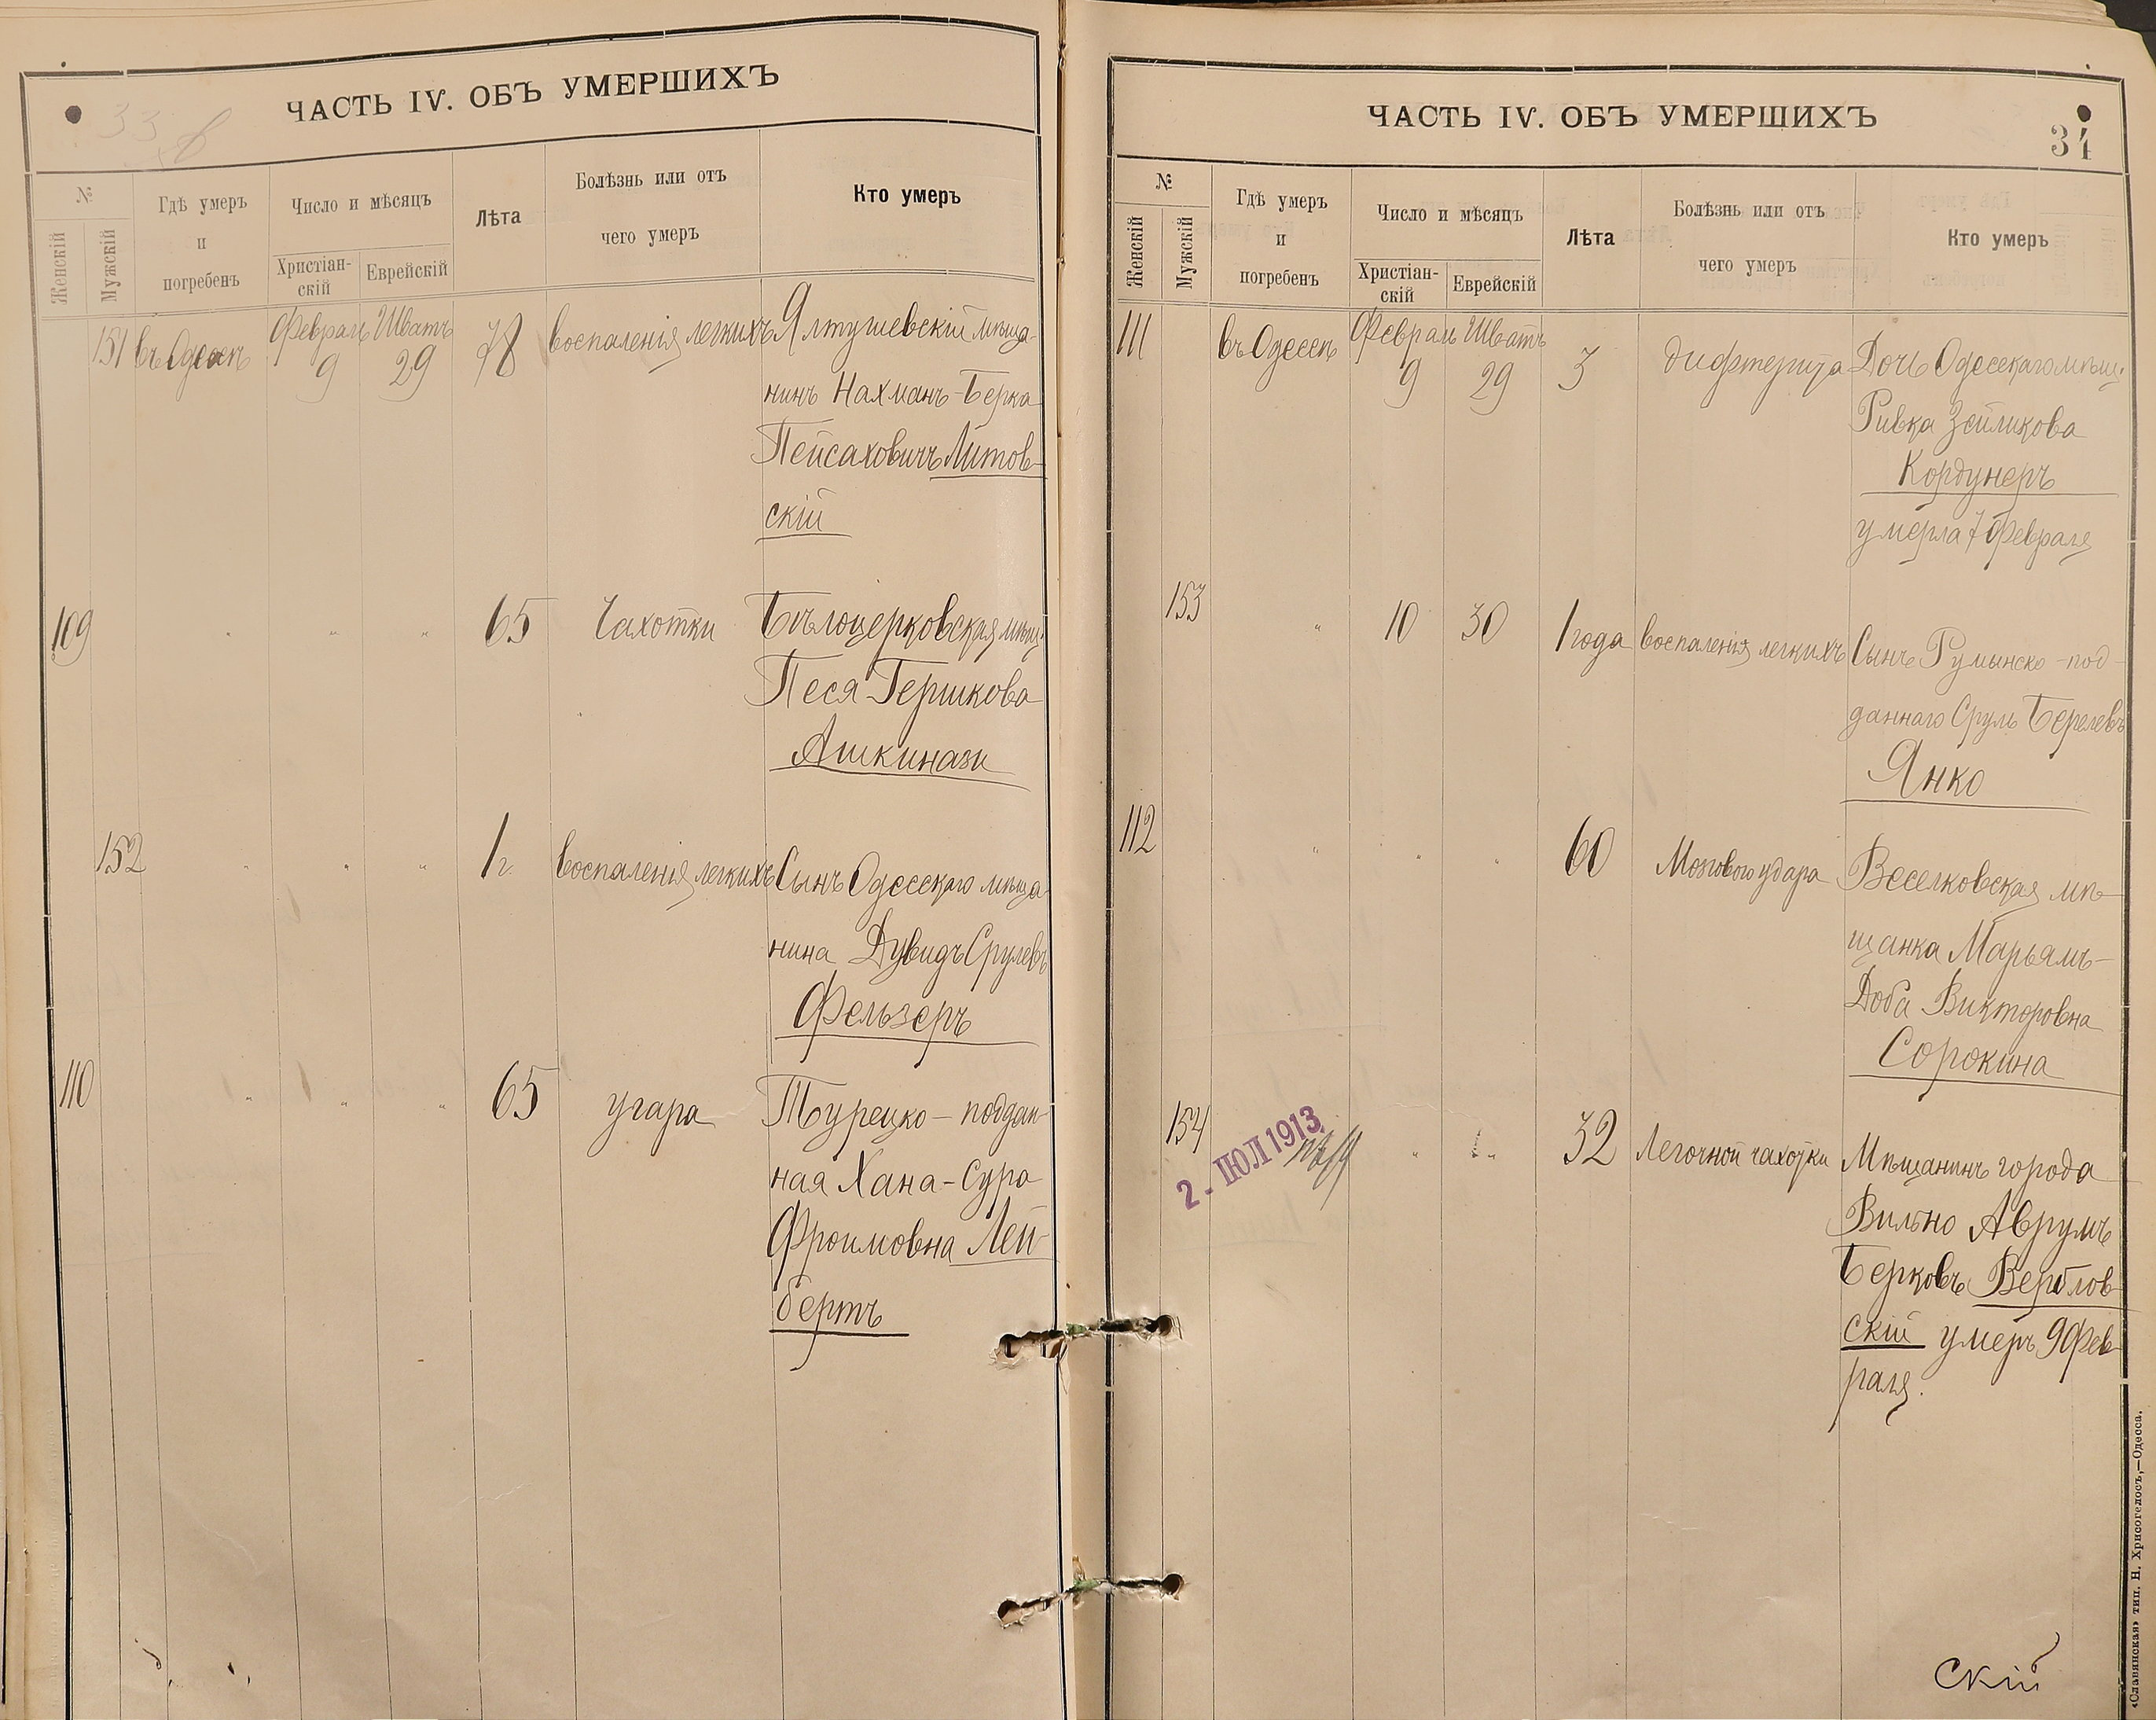 33
ЧАСТЬ IV. ОБЪ УМЕРШИХЪ
№
Женскій
Мужскій
Гдѣ умеръ
и
погребенъ
Число и мѣсяцъ
Христіан-
скій
Еврейскій
Лѣта
Болѣзнь или отъ
чего умеръ
Кто умеръ
151 въ Одессѣ Февраль 9 Шватъ 29 78 воспаленія легкихъ Ялтушевскій мѣща-
нинъ Нахманъ-Берка
Пейсаховичъ Литов-
скій
109 " " " 65 Чахотки Бѣлоцерковская мѣщ.
Песя Гершкова
Ашкинази
152 " " " 1 г. воспаленія легкихъ Сынъ Одесскаго мѣща-
нина Дувидъ Срулевъ
Фельзеръ
110 " " " 65 угара Турецко-поддан-
ная Хана-Сура
Фроимовна Лей-
бертъ
ЧАСТЬ IV. ОБЪ УМЕРШИХЪ
34
№
Женскій
Мужскій
Гдѣ умеръ
и
погребенъ
Число и мѣсяцъ
Христіан-
скій
Еврейскій
Лѣта
Болѣзнь или отъ
чего умеръ
Кто умеръ
111 въ Одессѣ Февраль 9 Шватъ 29 3 дифтерита Дочь Одесскаго мѣщ.
Ривка Зейликова
Кордунеръ
умерла 7 февраля
153 " 10 30 1 года воспаленія легкихъ Сынъ Румынско-под-
даннаго Сруль Берелевъ
Янко
112 " " " 60 Мозгового удара Веселковская мѣ-
щанка Марьямъ-
Доба Викторовна
Сорокина
154 2 - ІЮЛ 1913 " " 32 Легочной чахотки Мѣщанинъ города
Вильно Аврумъ
Берковъ Верблов-
скій умеръ 9 Фев-
раля.
скій
«Славянская» тип. Н. Хрисогелосъ,—Одесса.